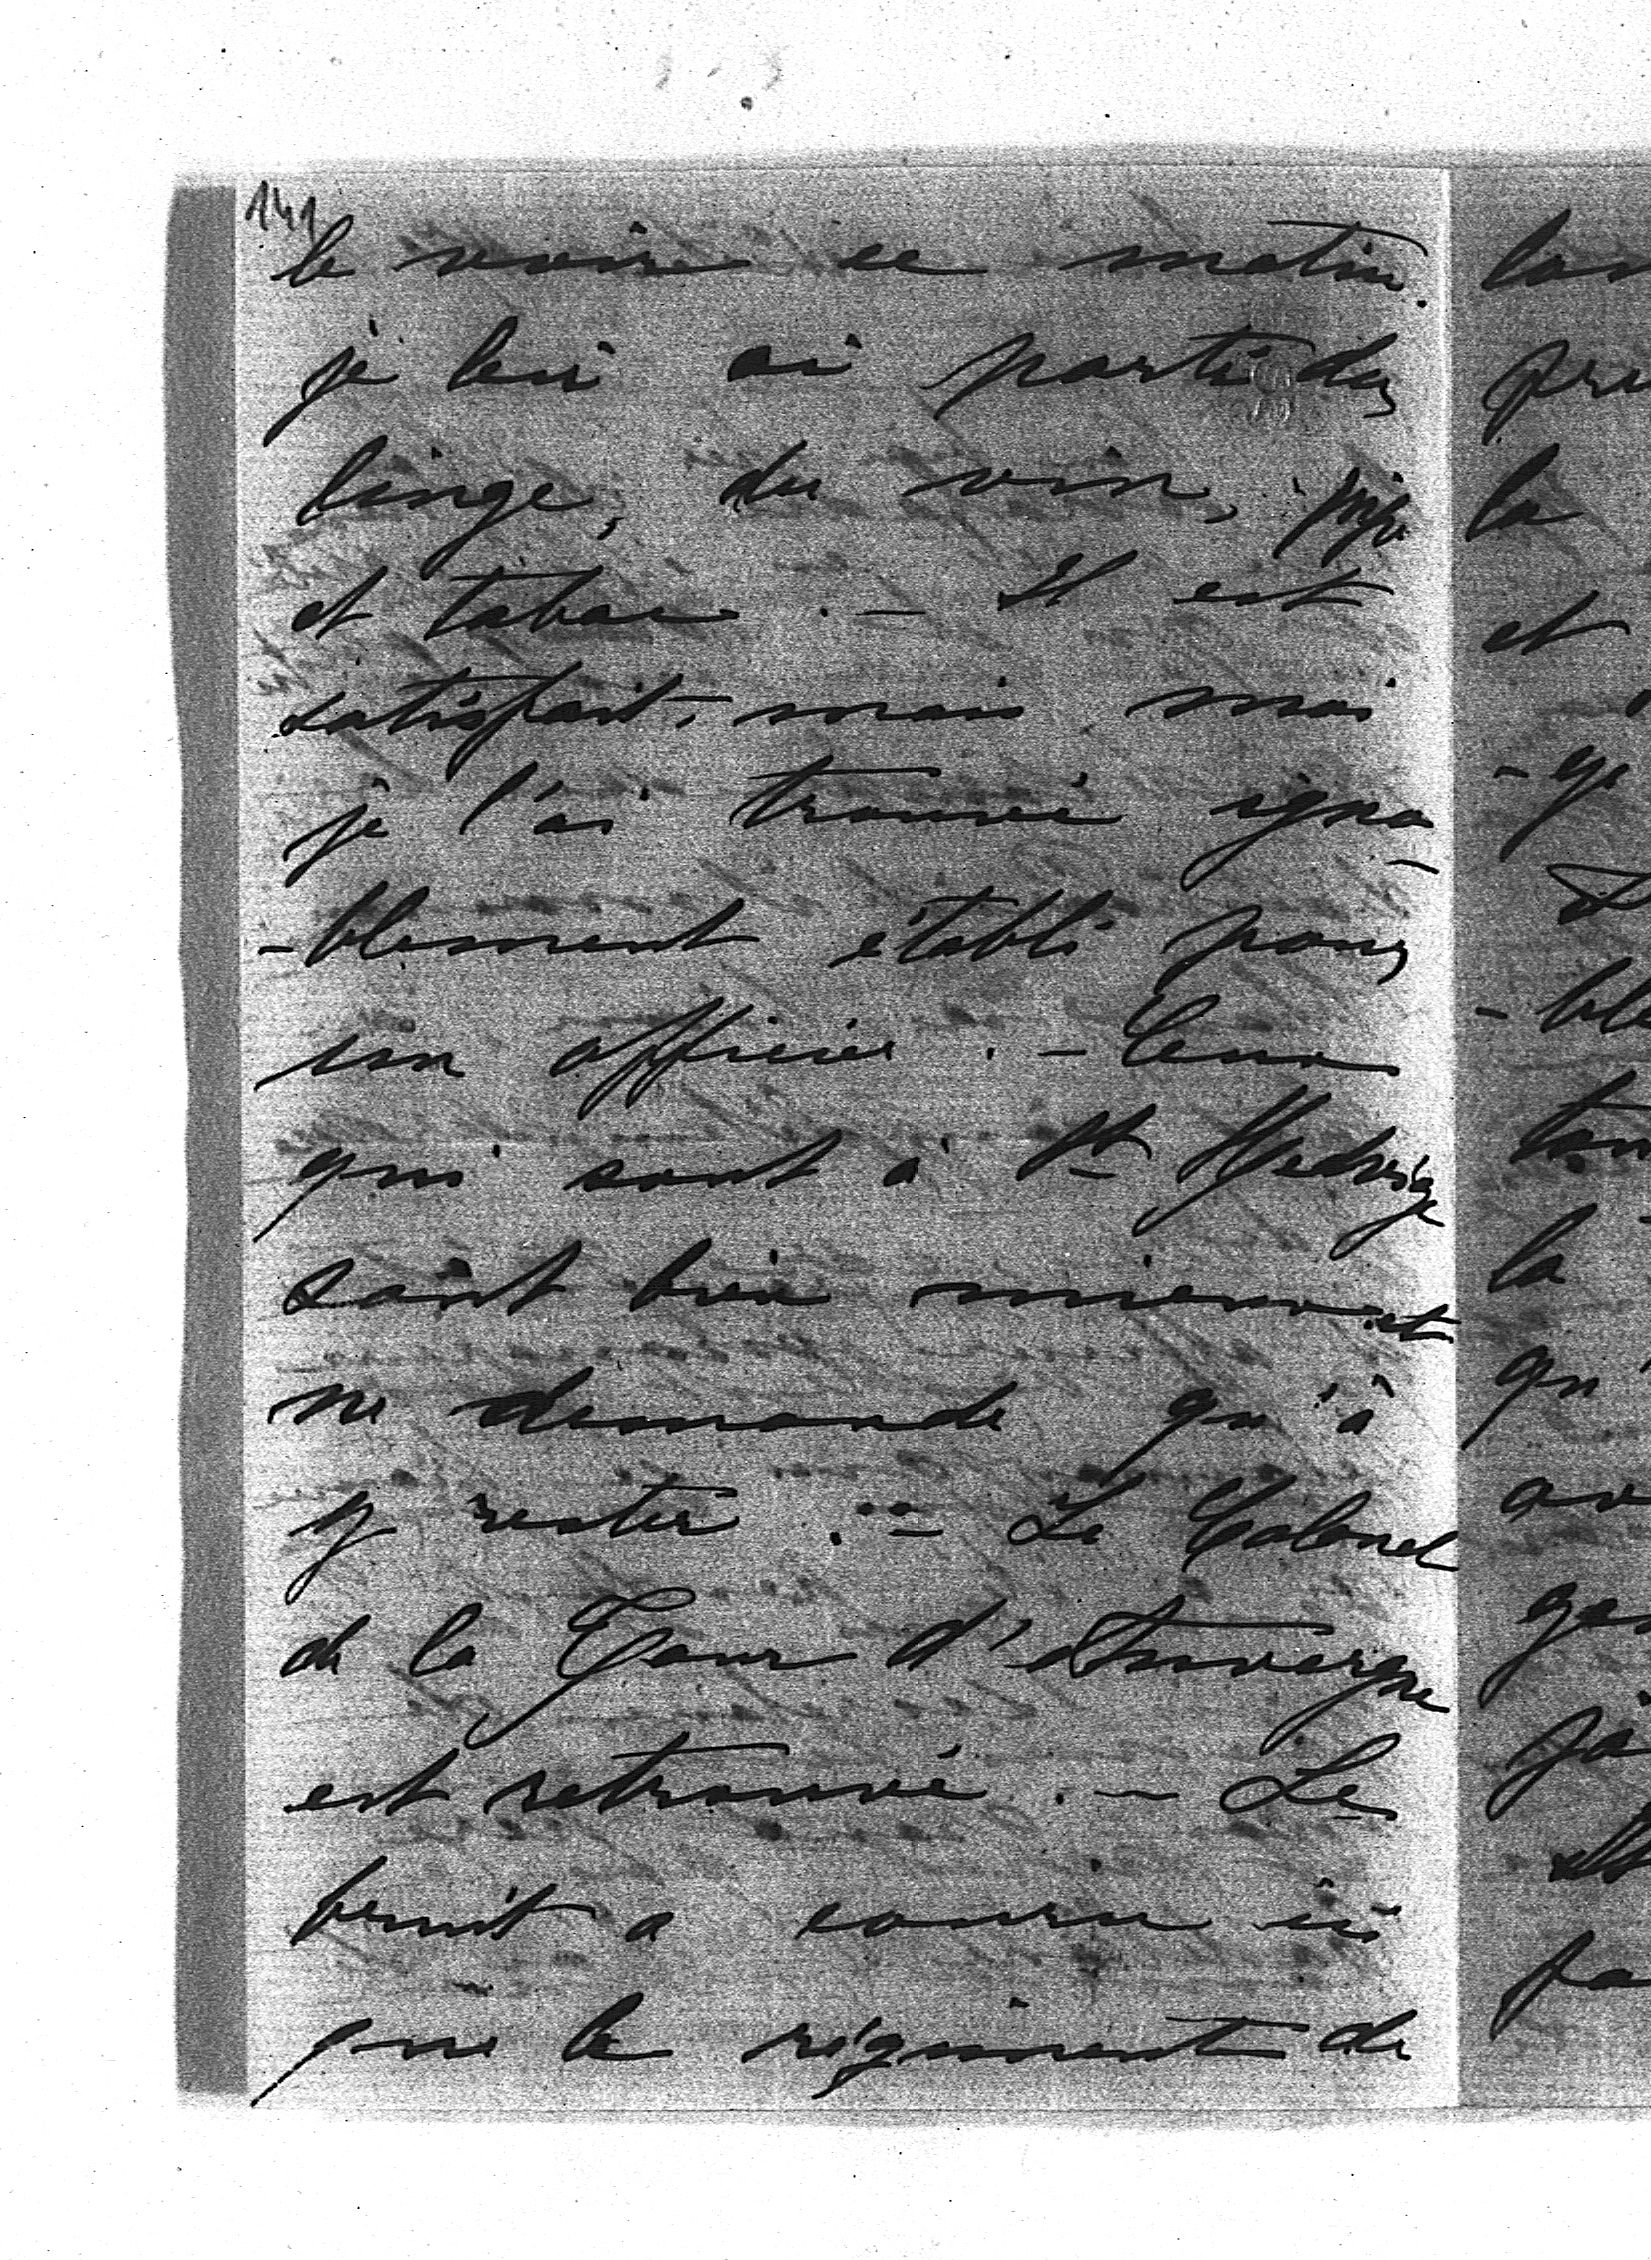 141
le voir ce matin.
je lui ai porté du
linge, du vin, pipe
et tabac. - Il est
satisfait. mais moi
je l'ai trouvé igno
-blement établi pour
un officier. - Ceux
qui sont à Ste Hedwige
sont bien mieux et
ne demande qu'à
y rester. - Le Colonel
de la Tour d'Auvergne
est retrouvé. - Le
bruit a couru ici
que le régiment de
la
et
-ge
la
qu'